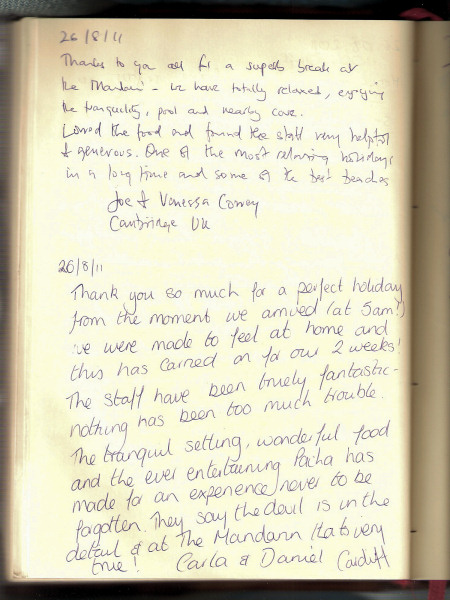 26/8/11
Thanks to you all for a superb break at
the Mandarin - we have totally relaxed, enjoying
the tranquility, pool and nearby cove.
Loved the food and found the staff very helpful
& generous. One of the most relaxing holidays
in a long time and some of the best beaches
Joe & Vanessa
Cambridge UK
26/8/11
Thank you so much for a perfect holiday
from the moment we arrived (at 5am!)
we were made to feel at home and
this has carried on for our 2 weeks!
The staff have been truely fantastic -
nothing has been too much trouble.
The tranquil setting, wonderful food
and the ever entertaining Pacha has
made for an experience never to be
forgotten. They say the devil is in the
detail & at The Mandarin that is very
true! Carla & Daniel Cardiff